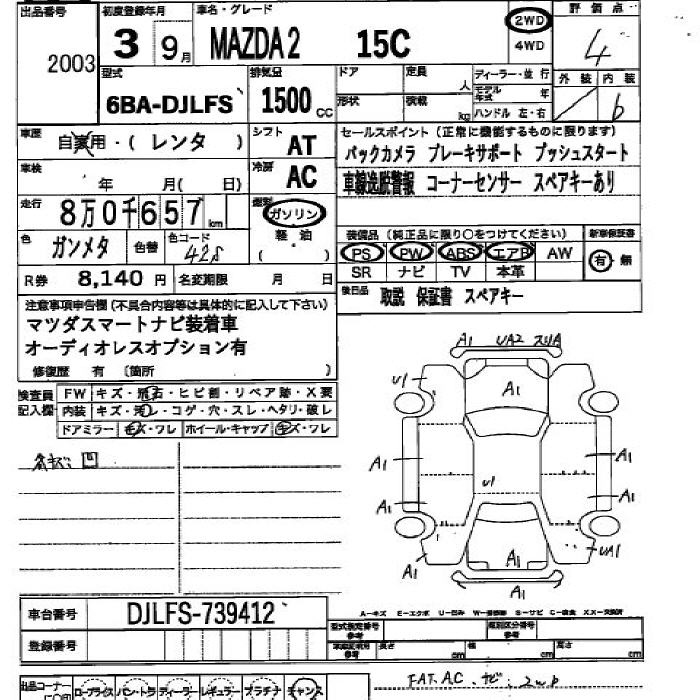 出品番号 初度登録年月 車名・グレード 2WD 評価点
2003 3 9月 MAZDA2 15C 4WD 4
型式 排気量 ドア 定員 人 ディーラー・並行 外装 内装
6BA-DJLFS 1500cc 形状 積載 kg モデル年式 年 ハンドル 左・右 b
車歴 自家用・(レンタ) シフト AT セールスポイント (正常に機能するものに限ります)
バックカメラ ブレーキサポート プッシュスタート
車検 年 月( 日) 冷房 AC 車線逸脱警報 コーナーセンサー スペアキーあり
走行 8万0千657km 燃料 ガソリン
軽・油
( )
装備品 (純正品に限り○をつけてください) 新車保証書
色 ガンメタ 色替 色コード 42S PS PW ABS エアB AW 有・無
SR ナビ TV 本革
R券 8,140円 名変期限 月 日 後日品 取説 保証書 スペアキー
注意事項申告欄 (不具合内容等は具体的に記入して下さい)
マツダスマートナビ装着車
オーディオレスオプション有
修復歴 有 〔箇所 〕
検査員記入欄 FW キズ・飛石・ヒビ割・リペア跡・X要
内装 キズ・汚レ・コゲ・穴・スレ・ヘタリ・破レ
ドアミラー キズ・ワレ ホイール・キャップ キズ・ワレ
A1 UA2
U1 A1
A1 A1
U1
A1 A1
A1 UA1
A1
A1
車台番号 DJLFS-739412
A-キズ E-エクボ U-凹み W-補修跡 S-サビ C-腐食 XX-交換済
登録番号 型式指定番号 参考 類別区分番号 参考
車庫証明用 参考 長さ cm 幅 cm 高さ cm
出品コーナー ロープライス バン・トラ ディーラー レギュラー プラチナ チャンス
FAT, AC, ナビ, 2wD